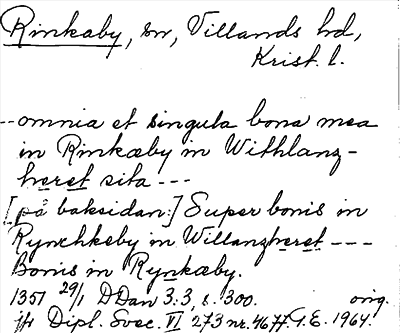 Rinkaby, sn, Villands hd,
Krist. l.
--omnia et singula bona mea
in Rinkæby in Withlanz-
heret sita ---
[på baksidan:] Super bonis in
Rynchkeby in Willanzheret ---
Bonis in Rynkæby.
1351 29/1 DDan 3:3, s. 300. orig.
jfr Dipl. Svec. VI 273 nr. 4677 G.E. 1964.